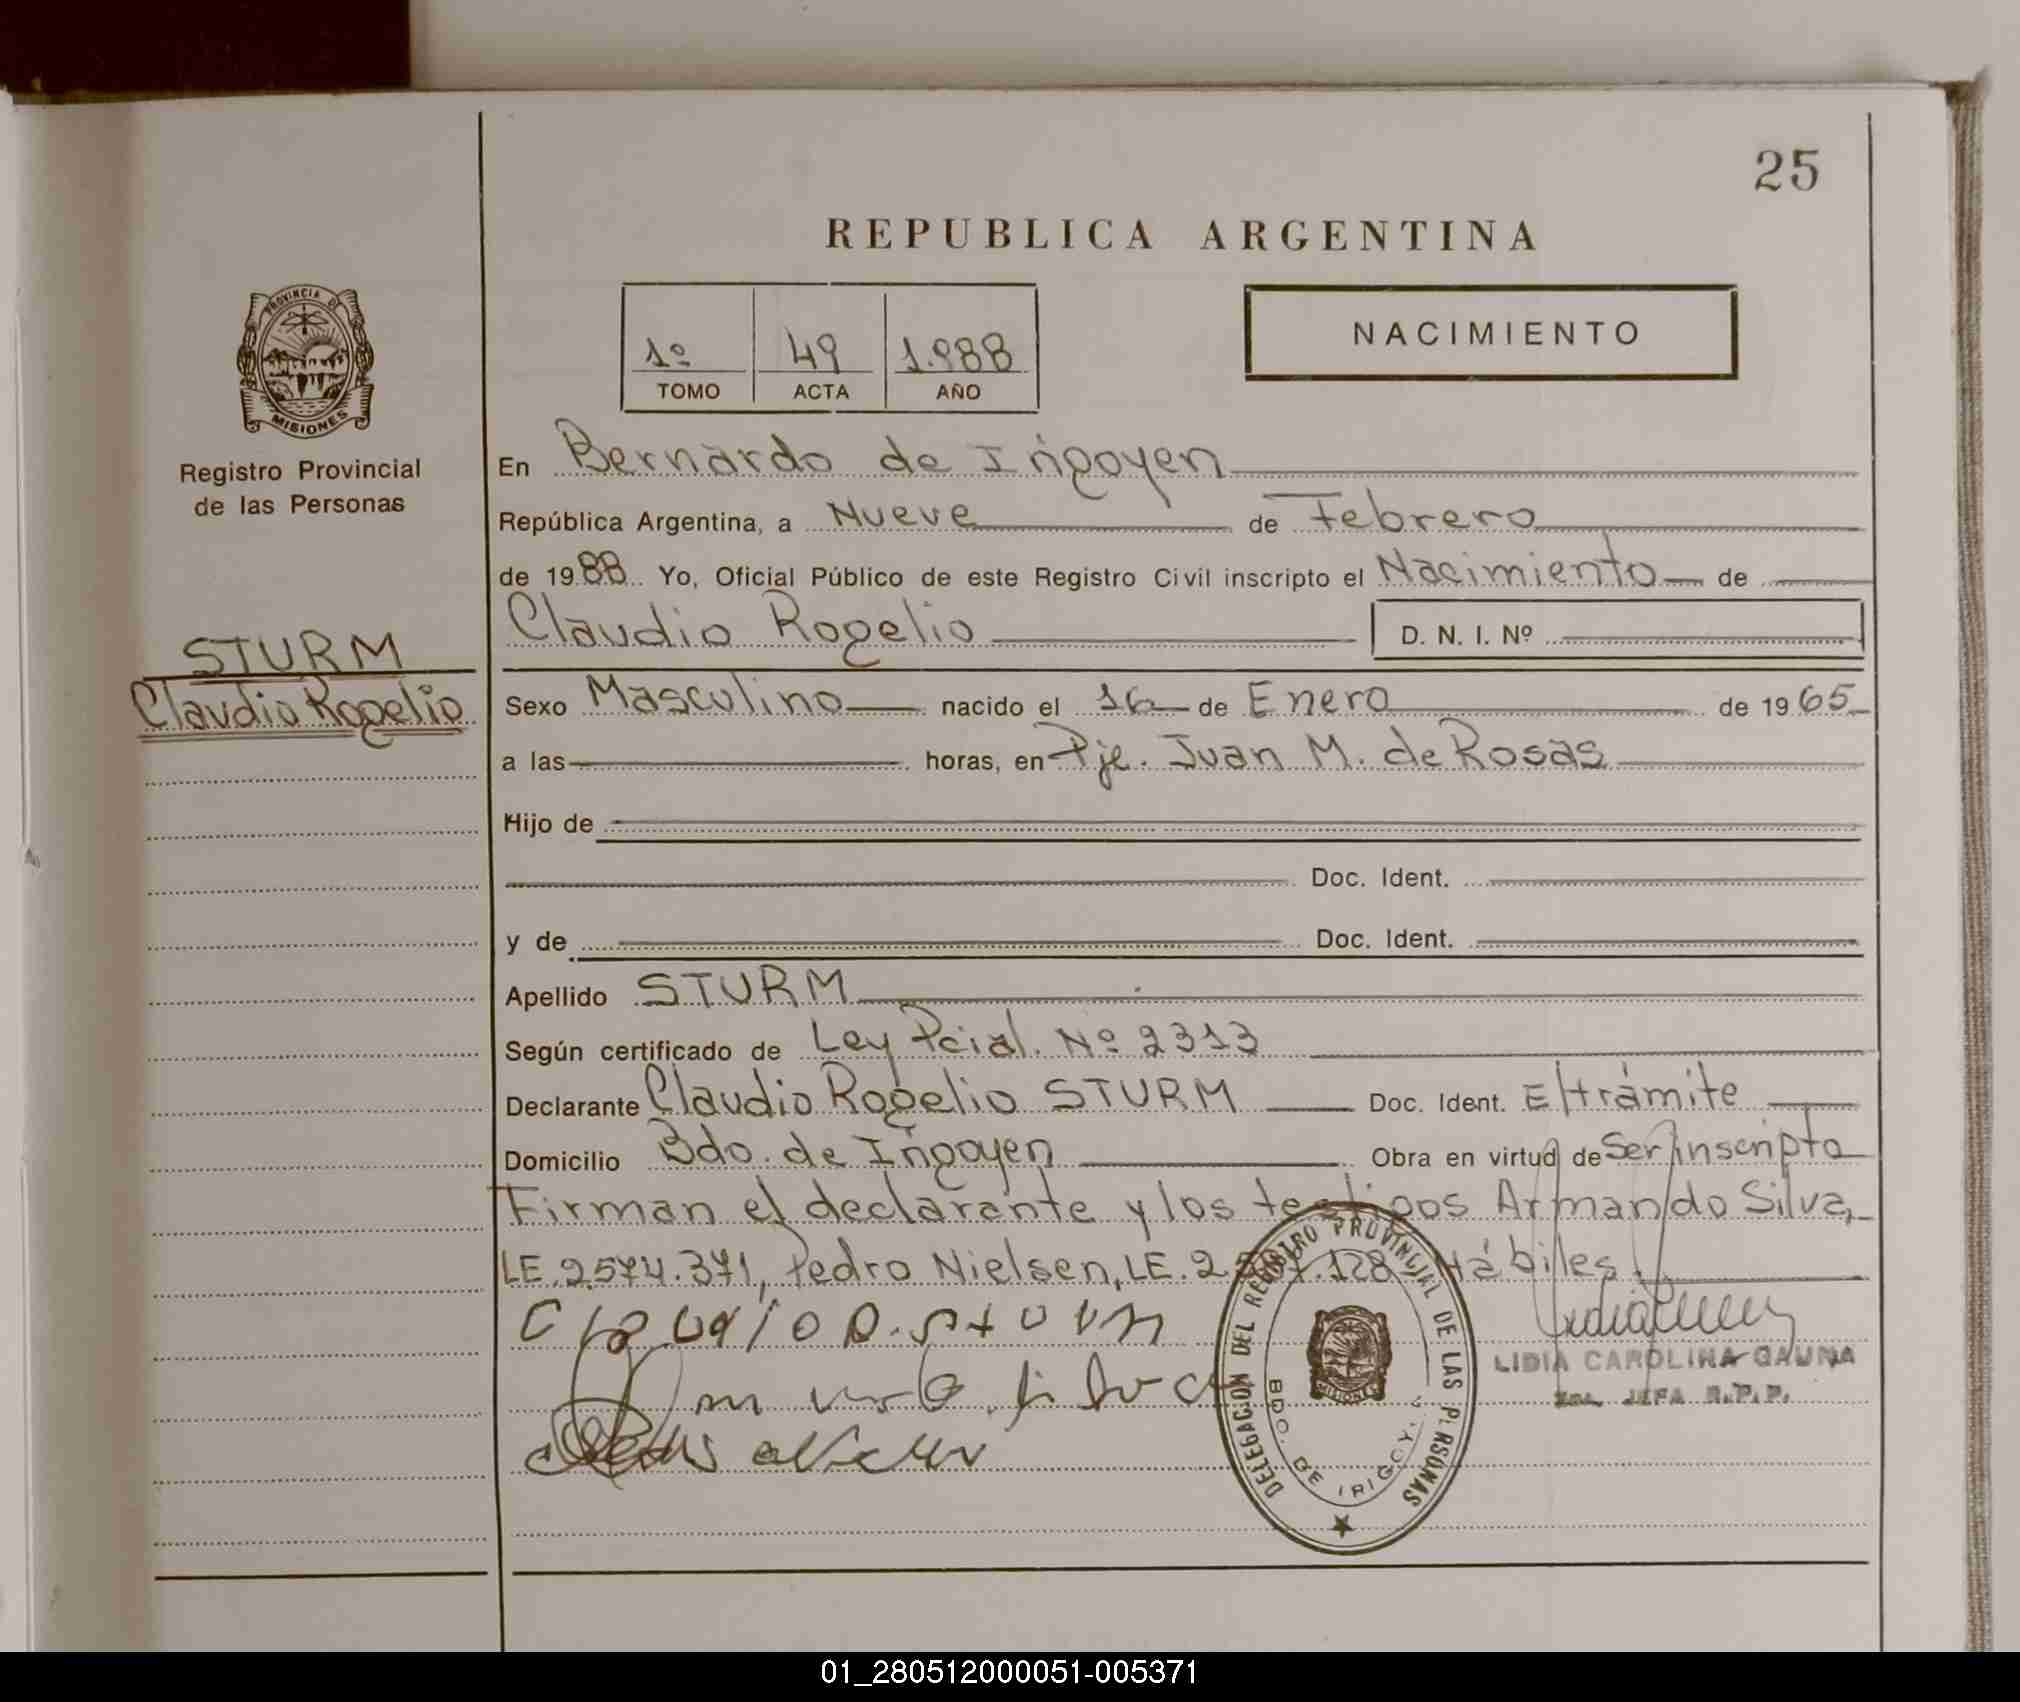 25
REPUBLICA ARGENTINA
1º 49 1.988
TOMO ACTA AÑO
NACIMIENTO
PROVINCIA DE
MISIONES
Registro Provincial
de las Personas
STURM
Claudio Rogelio
En Bernardo de Irigoyen
República Argentina, a Nueve de Febrero
de 1988 Yo, Oficial Público de este Registro Civil inscripto el Nacimiento de
Claudio Rogelio D. N. I. Nº
Sexo Masculino nacido el 16 de Enero de 1965
a las horas, en Pje. Juan M. de Rosas
Hijo de
Doc. Ident.
y de Doc. Ident.
Apellido STURM
Según certificado de Ley Pcial. Nº 2313
Declarante Claudio Rogelio STURM Doc. Ident. E/trámite
Domicilio Bdo. de Irigoyen Obra en virtud de Ser inscripto
Firman el declarante y los testigos Armando Silva,
LE.2.574.371, Pedro Nielsen, LE. Hábiles.
Claudio R. Sturm
LIDIA CAROLINA GAUNA
JEFA R.P.P.
DELEGACION DEL REGISTRO PROVINCIAL DE LAS PERSONAS
BDO. DE IRIGOY
MISIONES
01_280512000051-005371